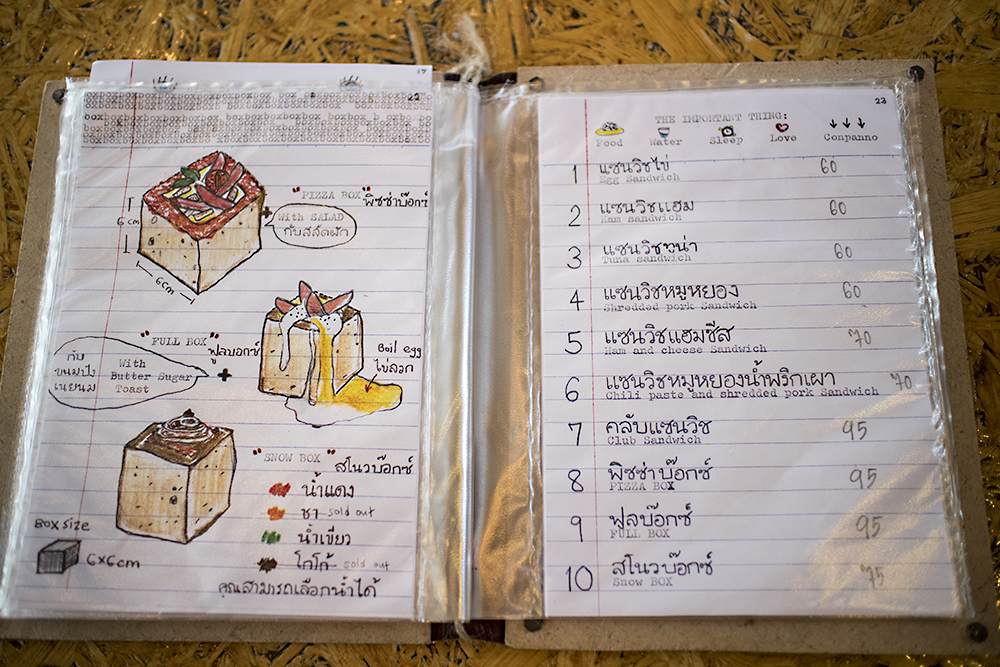 17
22
"PIZZA BOX" พิซซ่าบ๊อกซ์
6cm
With SALAD
กับสลัดผัก
6cm
"FULL BOX" ฟูลบอกซ์
กับ
ขนมปัง
เนยนม
With
Butter Sugar
Toast
+
Boil egg
ไข่ลวก
"SNOW BOX" สโนวบ๊อกซ์
น้ำแดง
ชา sold out
น้ำเขียว
โกโก้ sold out
คุณสามารถเลือกน้ำได้
BOX SIZE
6x6cm
23
THE IMPORTANT THING:
Food Water Sleep Love Conpanno
1 แซนวิชไข่ 60
Egg Sandwich
2 แซนวิชแฮม 60
Ham sandwich
3 แซนวิชทูน่า 60
Tuna sandwich
4 แซนวิชหมูหยอง 60
Shredded pork Sandwich
5 แซนวิชแฮมชีส 70
Ham and cheese Sandwich
6 แซนวิชหมูหยองน้ำพริกเผา 70
Chili paste and shredded pork Sandwich
7 คลับแซนวิช 95
Club Sandwich
8 พิซซ่าบ๊อกซ์ 95
PIZZA BOX
9 ฟูลบ๊อกซ์ 95
FULL BOX
10 สโนวบ๊อกซ์ 75
Snow BOX